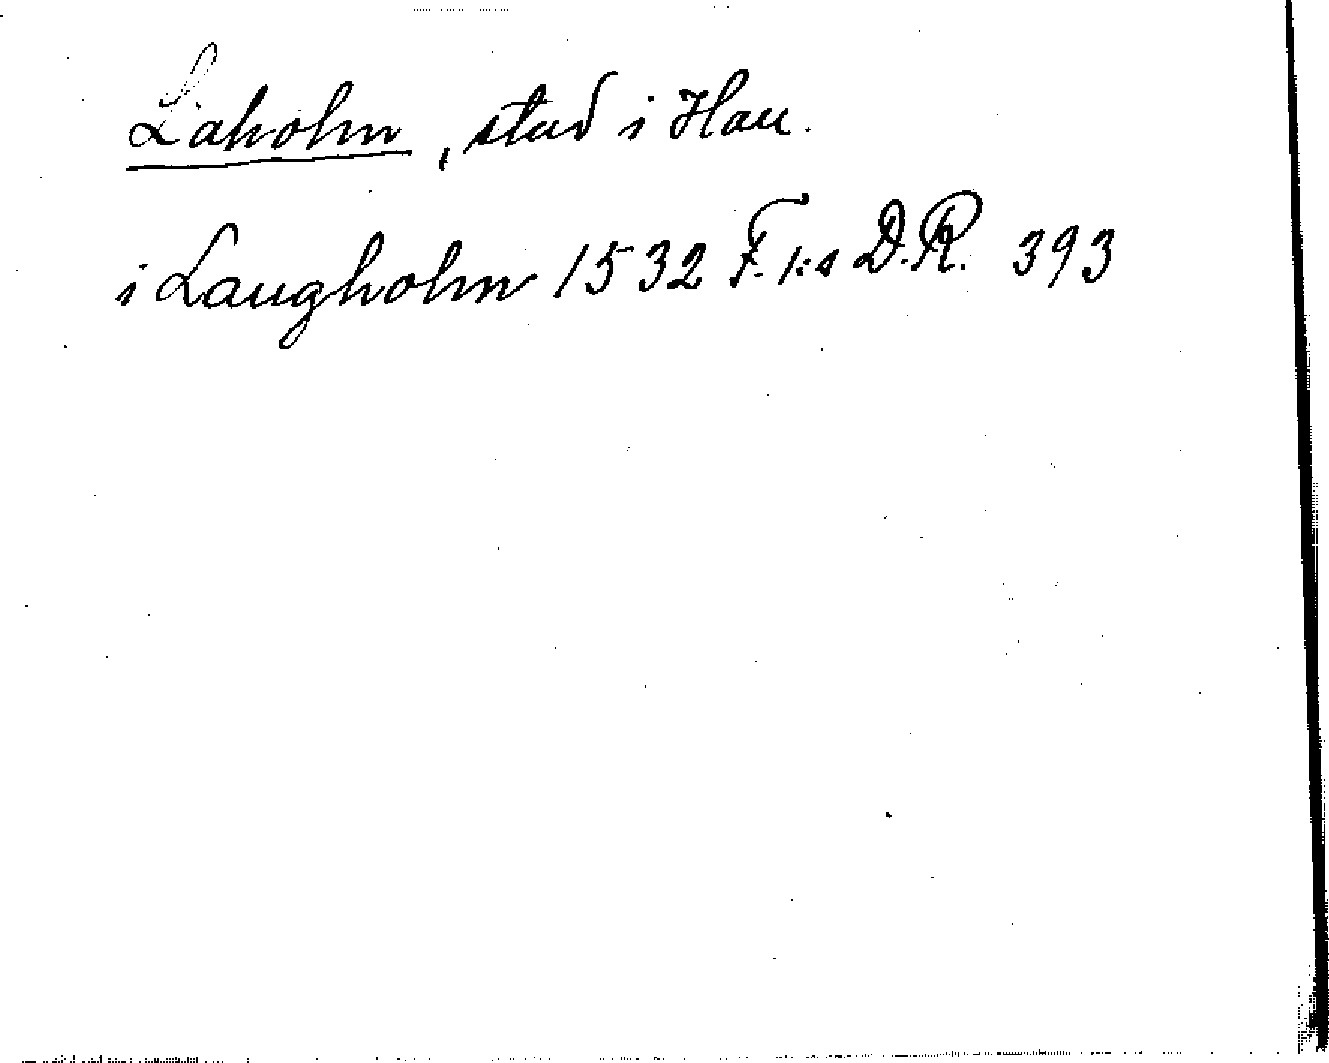 Laholm, stad i Hall.
i Laugholm 1532 F. 1:s D.R. 393